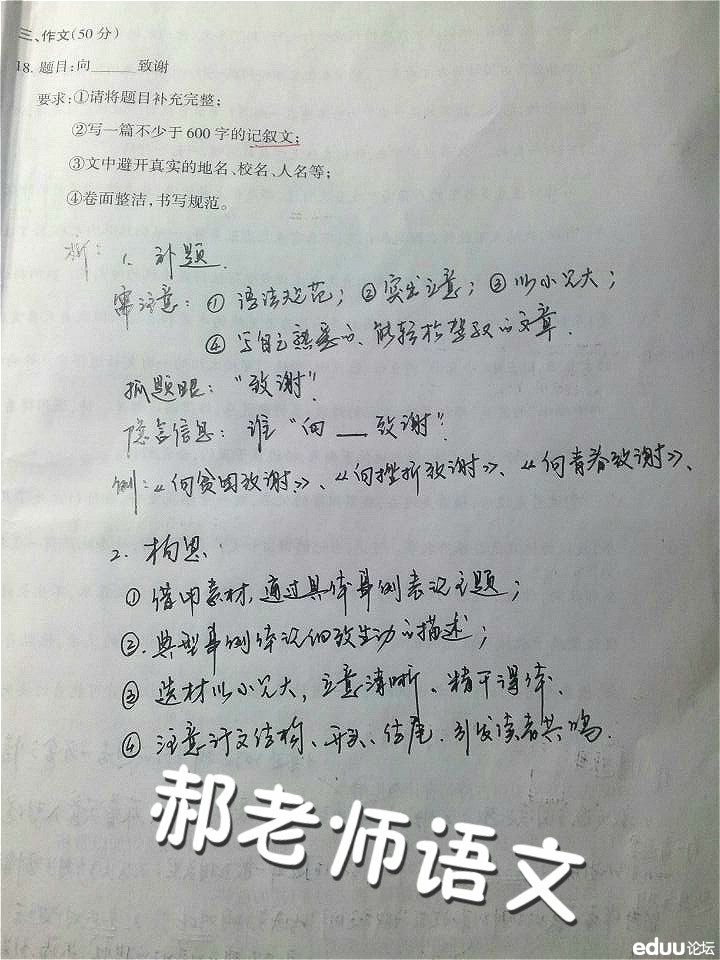 三、作文(50分)
18. 题目:向_____致谢
要求:①请将题目补充完整;
②写一篇不少于600字的记叙文;
③文中避开真实的地名、校名、人名等;
④卷面整洁,书写规范。
析: 1. 补题.
需注意: ①语法规范; ②突出立意; ③以小见大;
④写自己熟悉的、能轻松驾驭的文章.
抓题眼: “致谢”.
隐含信息: 谁“向___致谢”.
例:《向贫困致谢》、《向挫折致谢》、《向青春致谢》、
2. 构思.
①借用素材,通过具体事例表现主题;
②.典型事例体现细致生动的描述;
③选材以小见大,立意清晰、精干得体.
④注意行文结构、开头、结尾.引发读者共鸣.
郝老师语文
eduu论坛